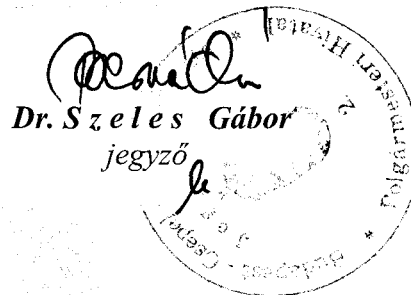 Dr. Szeles Gábor
jegyző
Polgármesteri Hivatal
Budapest - Csepel
2.